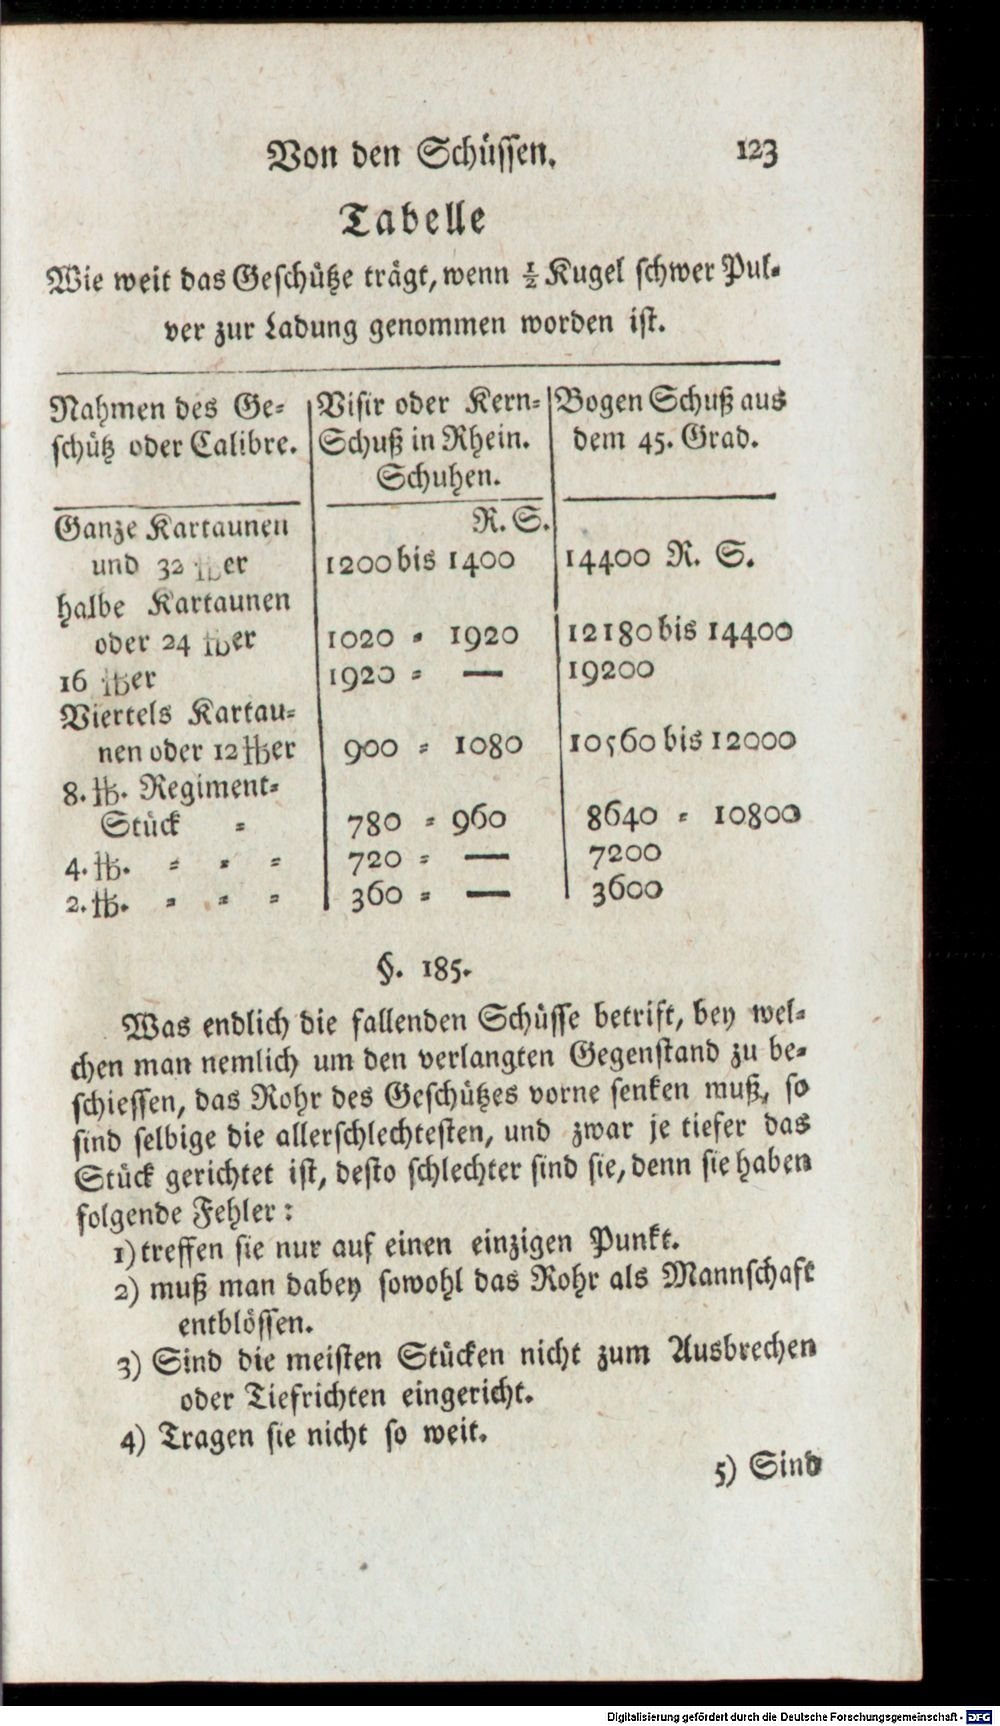 Von den Schüssen. 123
Tabelle
Wie weit das Geschütze trägt, wenn ½ Kugel schwer Pul-
ver zur Ladung genommen worden ist.
Nahmen des Ge- | Visir oder Kern- | Bogen Schuß aus
schütz oder Calibre. | Schuß in Rhein. | dem 45. Grad.
Schuhen.
Ganze Kartaunen | R. S.
und 32 ℔er | 1200 bis 1400 | 14400 R. S.
halbe Kartaunen
oder 24 ℔er | 1020 - 1920 | 12180 bis 14400
16 ℔er | 1920 - — | 19200
Viertels Kartau-
nen oder 12 ℔er | 900 - 1080 | 10560 bis 12000
8. ℔. Regiment-
Stück - | 780 - 960 | 8640 - 10800
4. ℔. - - - | 720 - — | 7200
2. ℔. - - - | 360 - — | 3600
§. 185.
Was endlich die fallenden Schüsse betrift, bey wel-
chen man nemlich um den verlangten Gegenstand zu be-
schiessen, das Rohr des Geschützes vorne senken muß, so
sind selbige die allerschlechtesten, und zwar je tiefer das
Stück gerichtet ist, desto schlechter sind sie, denn sie haben
folgende Fehler:
1) treffen sie nur auf einen einzigen Punkt.
2) muß man dabey sowohl das Rohr als Mannschaft
entblössen.
3) Sind die meisten Stücken nicht zum Ausbrechen
oder Tiefrichten eingericht.
4) Tragen sie nicht so weit.
5) Sind
Digitalisierung gefördert durch die Deutsche Forschungsgemeinschaft - DFG